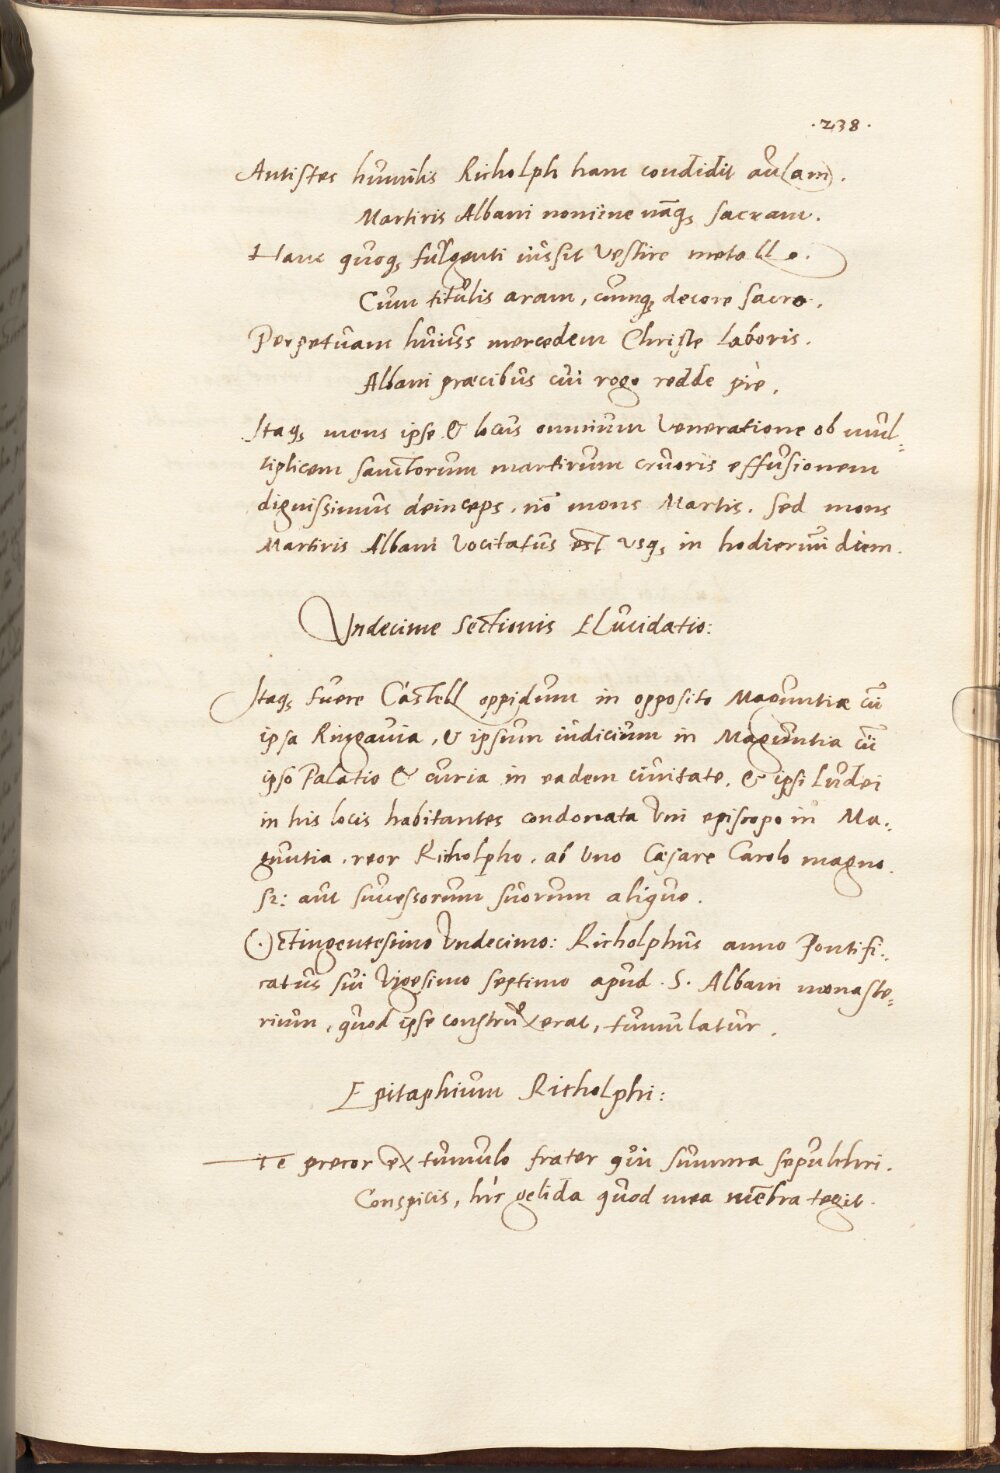 .238.
Antistes humilis Richolph hanc condidit aulam.
Martiris Albani nomine näq, sacram.
Hanc quoq, fulgenti iussit vestire metallo.
Cum titulis aram, cunq, decore sacro.
Perpetuam huiuss mercedem Christe laboris.
Albani præcibus cui rogo redde pie.
Itaq, mons ipse & locus omnium Veneratione ob mul=
tiplicem sanctorum martirum cruoris effusionem
dignissimus deinceps, nō mons Martis. sed mons
Martiris Albani vocitatus est usq, in hodiernū diem.
Vndecime sectionis Elucidatio:
Itaq, fuere Castell oppidum in opposito Maguntiæ cū
ipsa Ringauia, & ipsum iudicium in Maguntia cū
ipso Palatio & curia in eadem ciuitate, & ipsi Iudei
in his locis habitantes condonata vni episcopo in Ma=
guntia, reor Richolpho, ab vno Cæsare Carolo magno.
sz: aut successorum suorum aliquo.
Octingentesimo Vndecimo: Richolphus anno Pontifi=
catus sui Vigesimo septimo apud .S. Albani monaste=
rium, quod ipse construxerat, tumulatur.
Epitaphium Richolphi:
Te precor ex tumulo frater qui summa sepulchri.
Conspicis, hic gelida quod mea mēbra tegit.